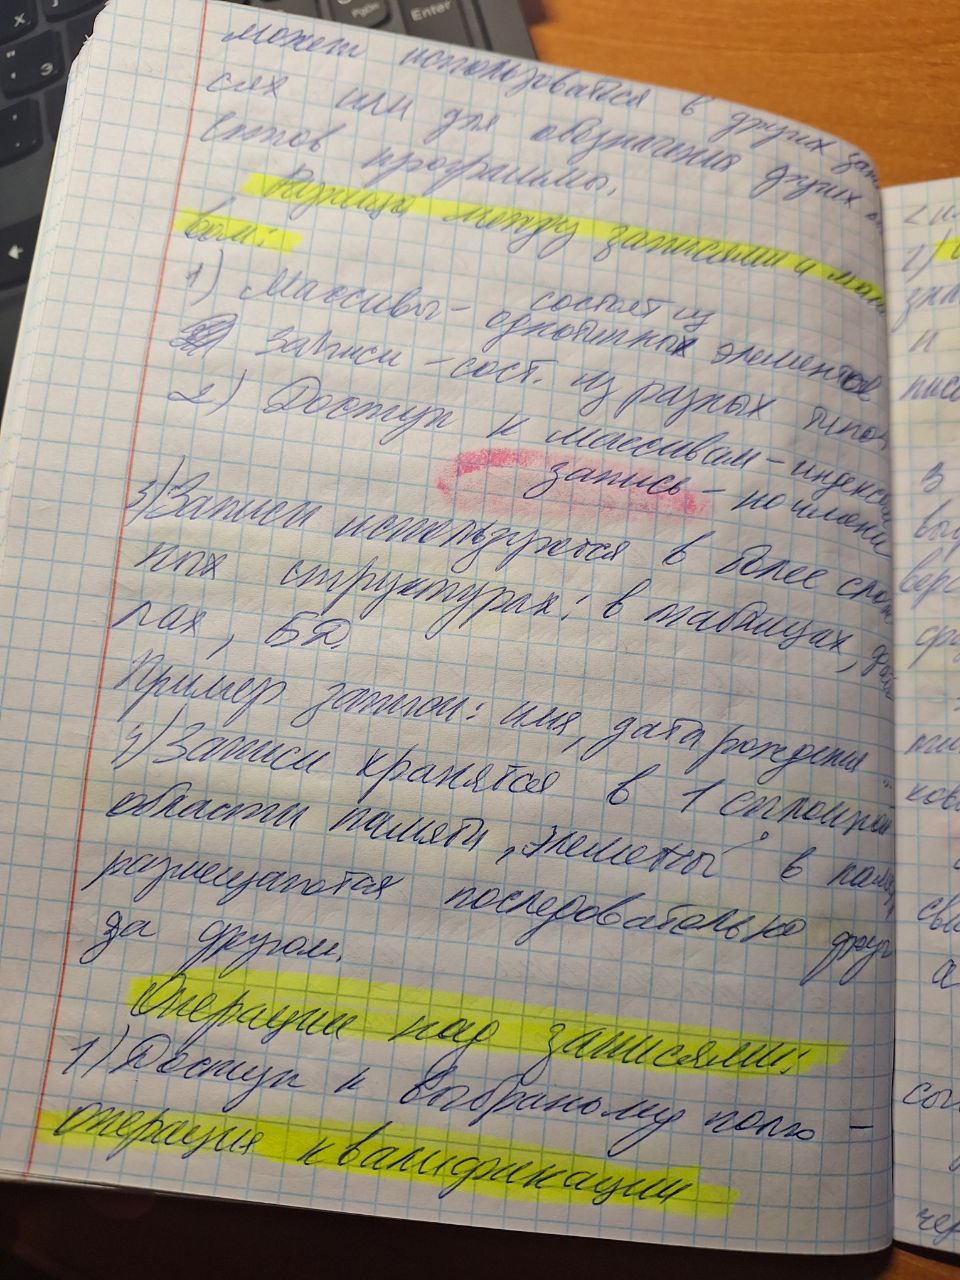 может использоваться в других зап
сях или для обозначения других эл
ентов программы.
Разница между записями и масси
вом:
1) Массивы - состоят из
однотипных элементов
Записи - сост. из разных типов
2) Доступ к массивам - индексы
запись - по имени
3) Записи используются в более слож
ных структурах: в таблицах, фай
лах, БД.
Пример записи: имя, дата рождения
4) Записи хранятся в 1 сплошной
области памяти, элементы в памяти
размещаются последовательно друг
за другом.
Операции над записями:
1) Доступ к выбраному полю -
операция квалификации